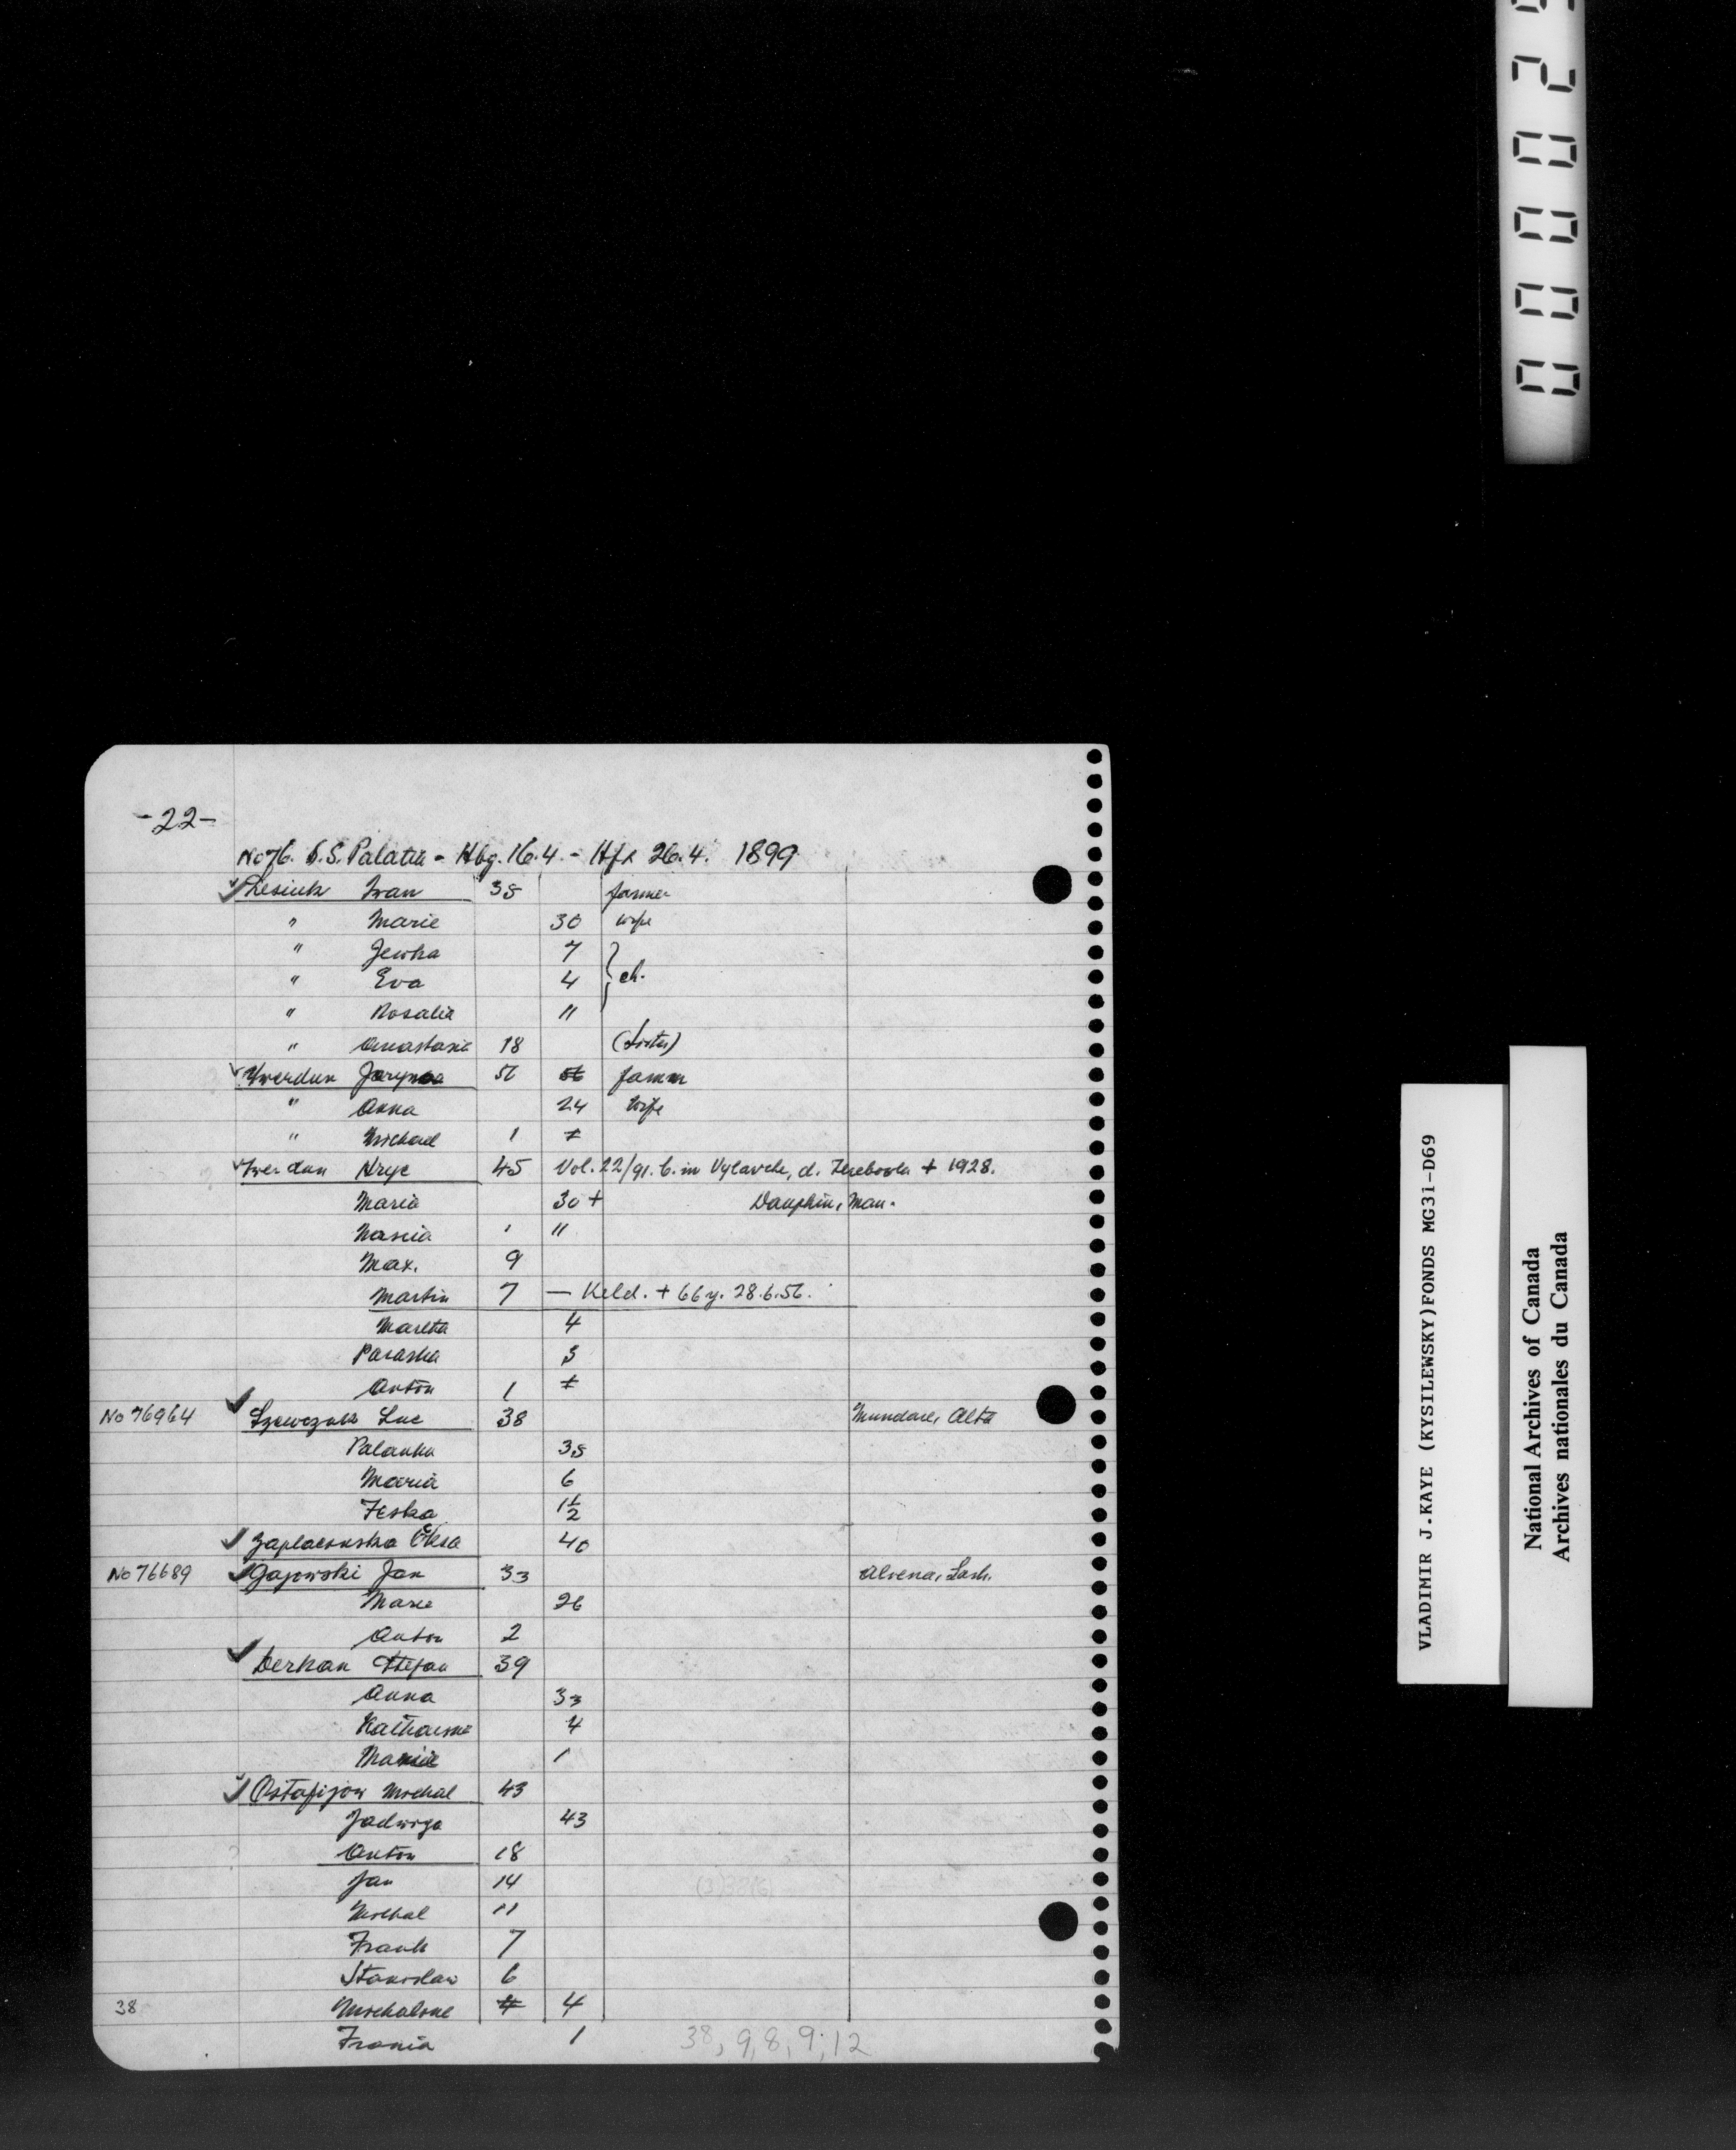 -22-
No 76. S.S. Palatia - Hbg. 16.4 - Hfx 26.4. 1899
Lesiuk Iwan 35 farmer
" Marie 30 wife
" Jewka 7
" Eva 4 } ch.
" Rosalia 11
" Anastasia 18 (sister)
Twerdun 56 56 farmer
" Anna 24 wife
" Michael 1
Twerdun Hryc 45 Vol. 22/91. b. in Vylavche, d. Terebovla + 1928.
Maria 30 + Dauphin, Man.
Nascia ' 11
Max. 9
Martin 7 — Keld. + 66 y. 28.6.56.
Martha 4
Paraska 3
Anton 1
No 76964 Szewczuk Luc 38 Mundare, Alta
Palanka 35
Maria 6
Feska 1½
40
No 76689 Gajewski Jan 33 Alvena, Sask.
Marie 26
Anton 2
Derkan Stefan 39
Anna 33
Katharine 4
Marie 1
Ostafijow Michal 43
Jadwiga 43
Anton 18
Jan 14
Michal 11
Frank 7
Stanislaw 6
38 Michaline 4 4
Frania 1 38, 9, 8, 9, 12
00002
VLADIMIR J.KAYE (KYSILEWSKY)FONDS MG31-D69
National Archives of Canada
Archives nationales du Canada